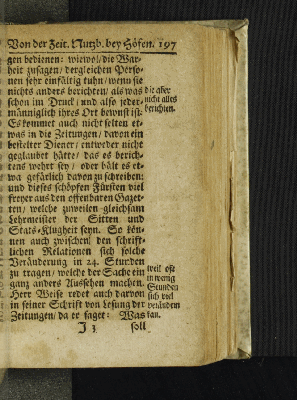 Von der Zeit. Nutzb. bey Höfen. 197
gen bedienen: wiewol/ die War-
heit zusagen/ dergleichen Perso-
nen sehr einfältig tuhn/ wenn sie
nichts anders berichten/ als was
schon im Druck/ und also jeder-
männiglich ihres Ort bewust ist.
Es kommet auch nicht selten et-
was in die Zeitungen/ davon ein
bestelter Diener/ entweder nicht
geglaubet hätte/ das es berich-
tens wehrt sey/ oder hält es et-
wa gefärlich davon zu schreiben:
und dieses schöpfen Fürsten viel
freyer aus den offenbaren Gazet-
ten/ welche zuweilen gleichsam
Lehrmeister der Sitten und
Stats-Klugheit seyn. So kön-
nen auch zwischen den schrift-
lichen Relationen sich solche
Veränderung in 24. Stunden
zu tragen/ welche der Sache ein
ganz anders Aussehen machen.
Herr Weise redet auch darvon
in seiner Schrift von Lesung der
Zeitungen/ da er saget: Was
J 3 soll
die aber
nicht alles
berichten.
weil oft
in wenig
Stunden
sich viel
verändern
kan.